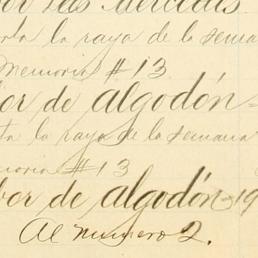 por las
rta la raya de la semana
Memoria #13
bor de algodón
ta la raya de la semana
moria #13
bor de algodón 19
Al número 2.